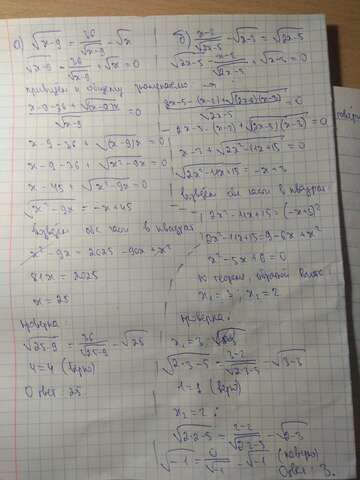 а) √x-9 = 36/√x-9 - √x
√x-9 - 36/√x-9 + √x = 0
приведем к общему знаменателю
x-9-36+√(x-9)x / √x-9 = 0
x-9-36 + √(x-9)x = 0
x-9-36 + √x²-9x = 0
x-45 + √x²-9x = 0
√x²-9x = -x+45
возведем обе части в квадрат
x²-9x = 2025-90x+x²
81x = 2025
x = 25
Проверка
√25-9 = 36/√25-9 - √25
4=4 (верно)
Ответ: 25
б) x-2/√2x-5 - √x-3 = √2x-5
√2x-5 - x-2/√2x-5 + √x-3 = 0
2x-5-(x-2)+√(2x-5)(x-3) / √2x-5 = 0
2x-5-(x-2)+√(2x-5)(x-3) = 0
x-3+√2x²-11x+15 = 0
√2x²-11x+15 = -x+3
возведем обе части в квадрат
2x²-11x+15 = (-x+3)²
2x²-11x+15 = 9-6x+x²
x²-5x+6 = 0
по теореме обратной Виета:
x₁ = 3; x₂ = 2
проверка:
x₁ = 3;
√2·3-5 = 3-2/√2·3-5 - √3-3
1=1 (верно)
x₂ = 2:
√2·2-5 = 2-2/√2·2-5 - √2-3
√-1 = 0/√-1 - √-1 (неверно)
Ответ: 3.